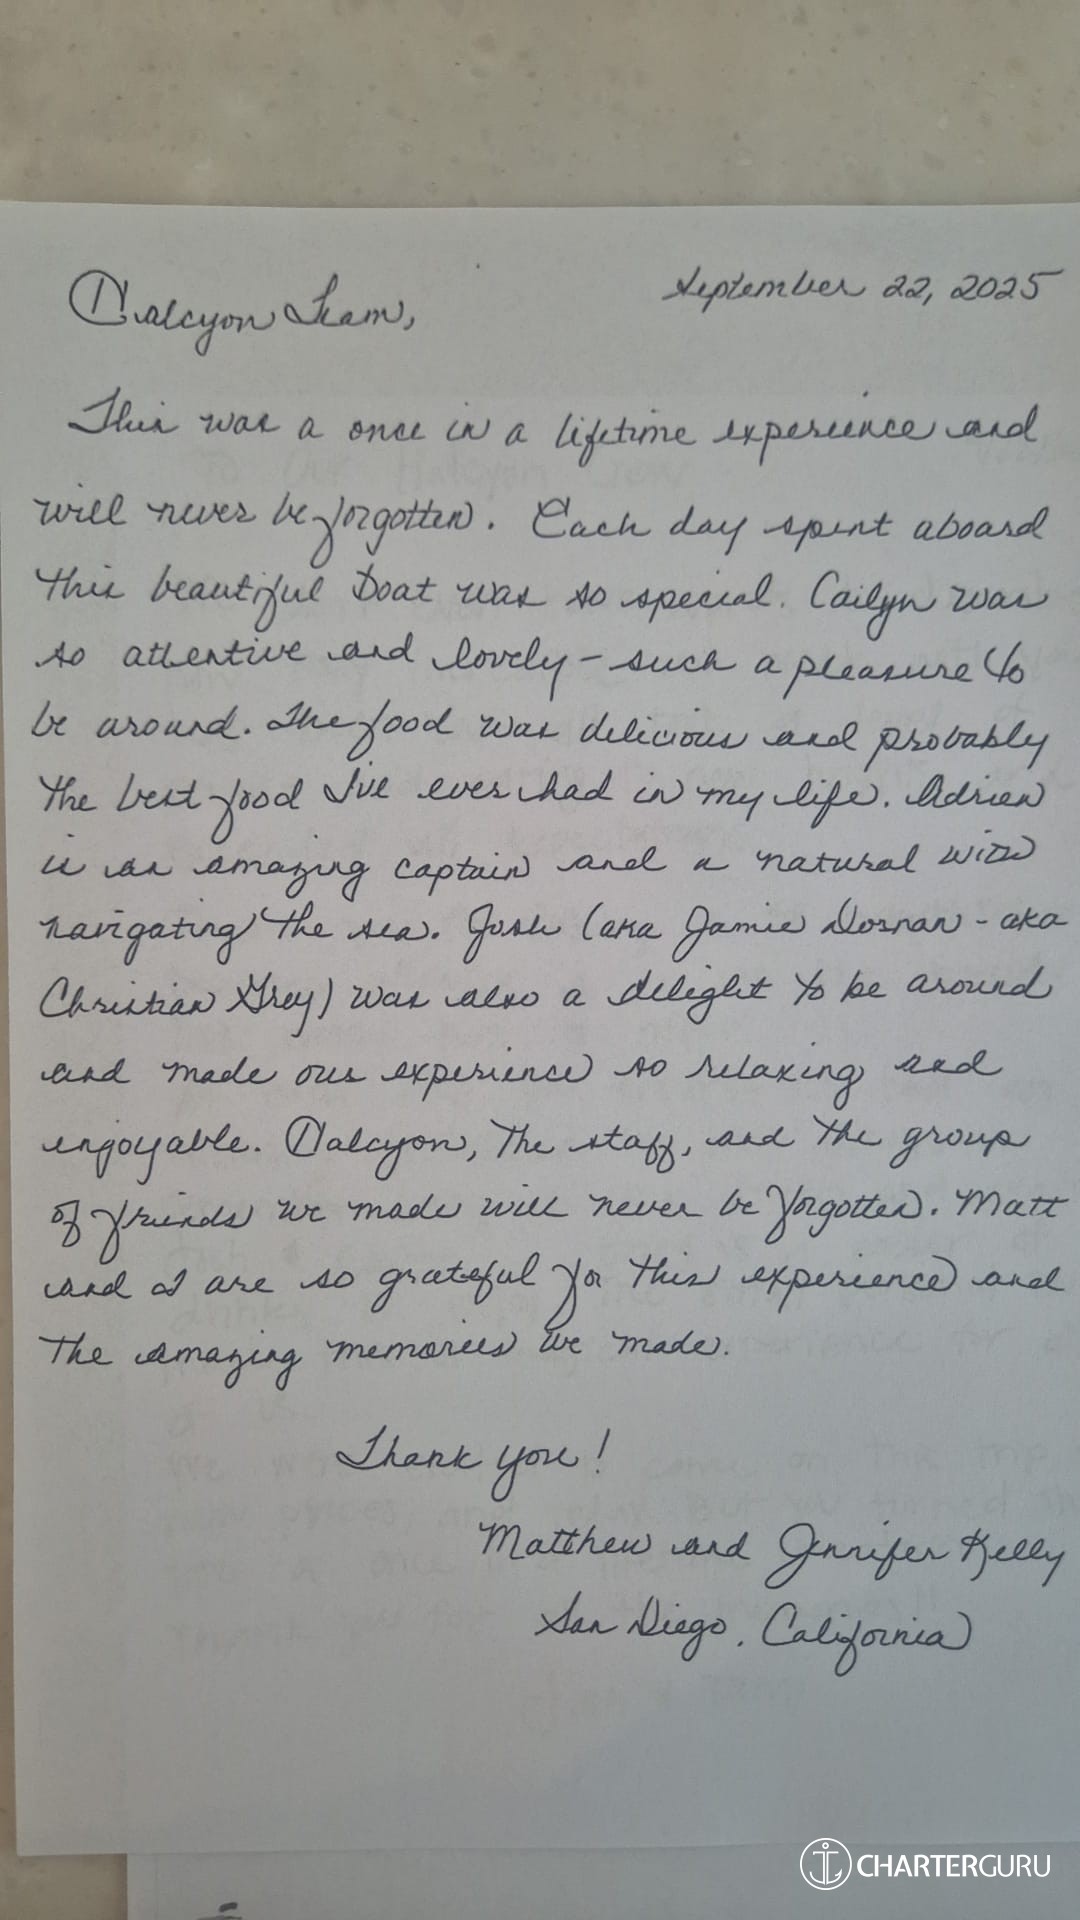 September 22, 2025
Halcyon Team,
This was a once in a lifetime experience and
will never be forgotten. Each day spent aboard
this beautiful boat was so special. Cailyn was
so attentive and lovely - such a pleasure to
be around. The food was delicious and probably
the best food I've ever had in my life. Adrien
is an amazing captain and a natural with
navigating the sea. Josh (aka Jamie Dornan - aka
Christian Grey) was also a delight to be around
and made our experience so relaxing and
enjoyable. Halcyon, the staff, and the group
of friends we made will never be forgotten. Matt
and I are so grateful for this experience and
the amazing memories we made.
Thank you!
Matthew and Jennifer Kelly
San Diego, California
CHARTERGURU